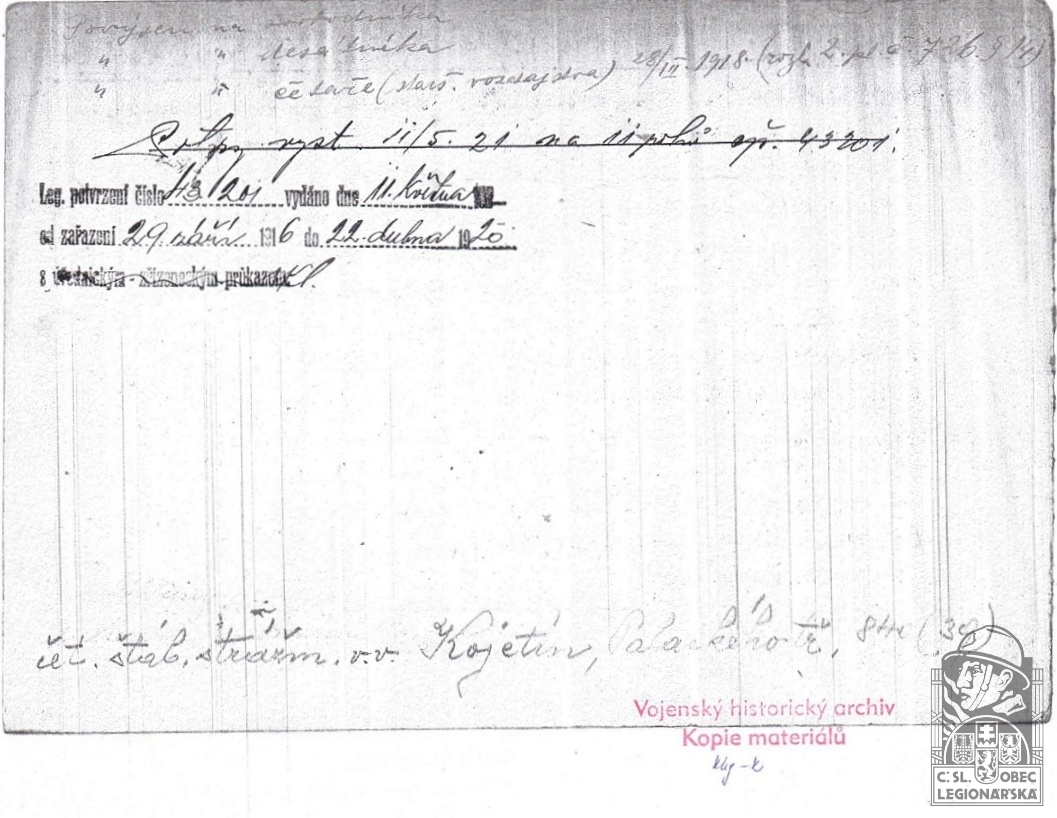 Povýšen na svobodníka
" " desátníka
" " četaře (starš. rozdajstva) 28/II. 1918 (rozk. 2. pl. č. 726 § 4)
Potpy vyst. 11/5. 21 na 11 pohů čp. 43201.
Leg. potvrzení číslo 43201 vydáno dne 11. května
od zařazení 29. září 1916 do 22. dubna 1920
s úřednickým - zřízeneckým průkazem
čet. štáb. strážm. v.v. Kojetín, Palackého tř. 844 (39)
Vojenský historický archiv
Kopie materiálů
Č.SL. OBEC
LEGIONÁŘSKÁ